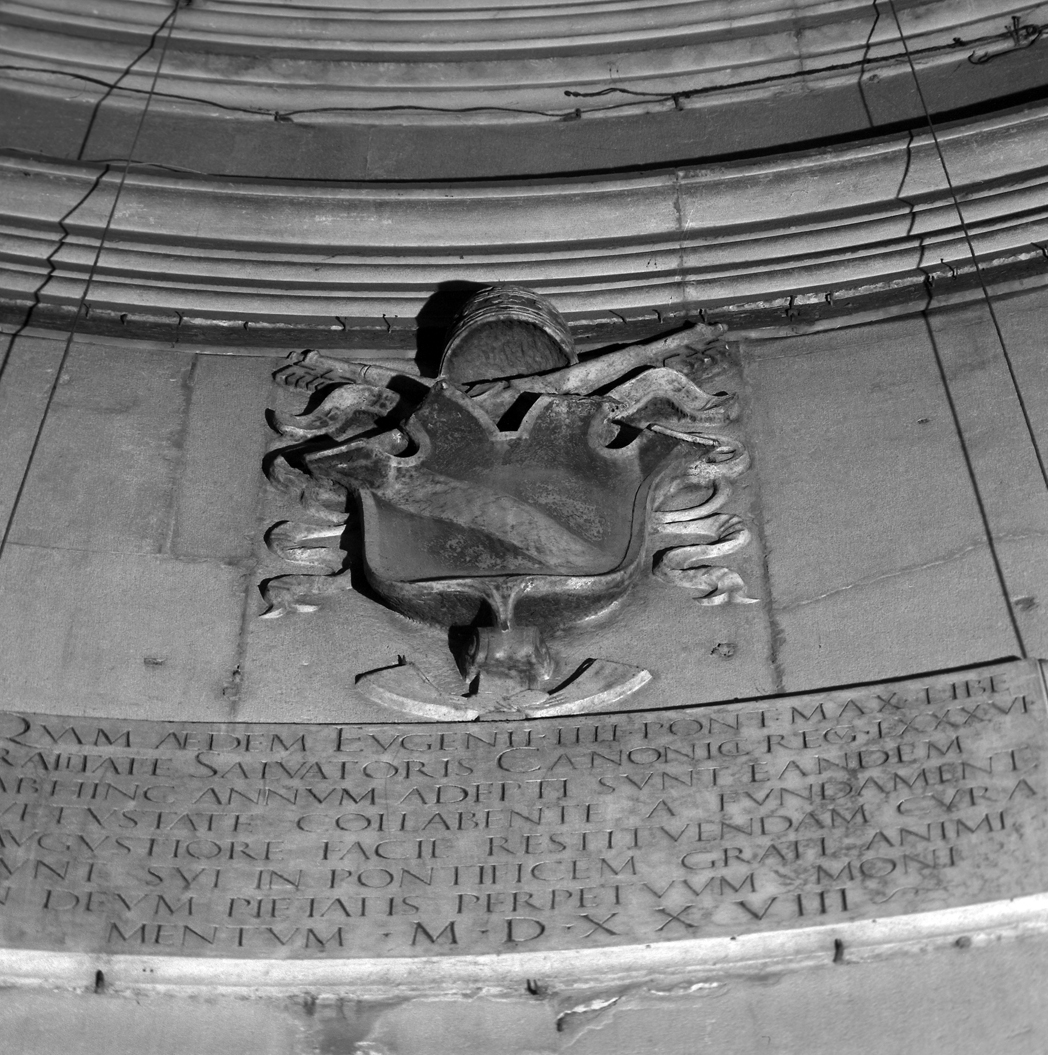 QVAM AEDEM EVGENII·IIII·PONT·MAX·LIBE
RALITATE SALVATORIS CANONICI REG·LXXXVI·
ABHINC ANNVM ADEPTI SVNT EANDEM
VETVSTATE COLLABENTE A FVNDAMENT
AVGVSTIORE FACIE RESTITVENDAM CVRA
SVI IN PONTIFICEM GRATI ANIMI
DEVM PIETATIS PERPETVVM MONI
MENTVM · M · D · X · X · VIII